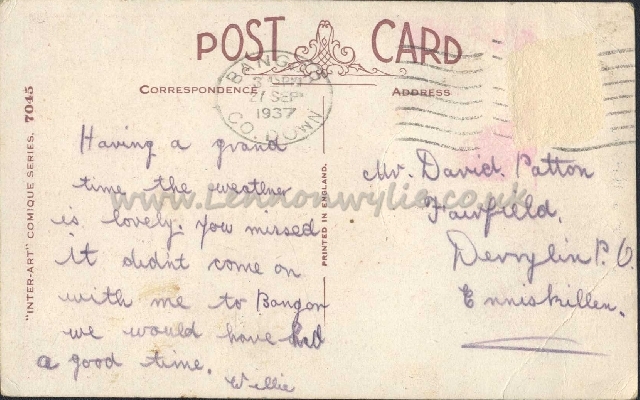 POST CARD
CORRESPONDENCE
ADDRESS
BANGOR
27 SEP
1937
CO. DOWN
"INTER-ART" COMIQUE SERIES. 7045
PRINTED IN ENGLAND.
www.Lennonwylie.co.uk
Having a grand
time the weather
is lovely. You missed
it didnt come on
with me to Bangor
we would have had
a good time.
Willie
Mr. David. Patton
Fairfield.
Derrylin P. O.
Enniskillen.